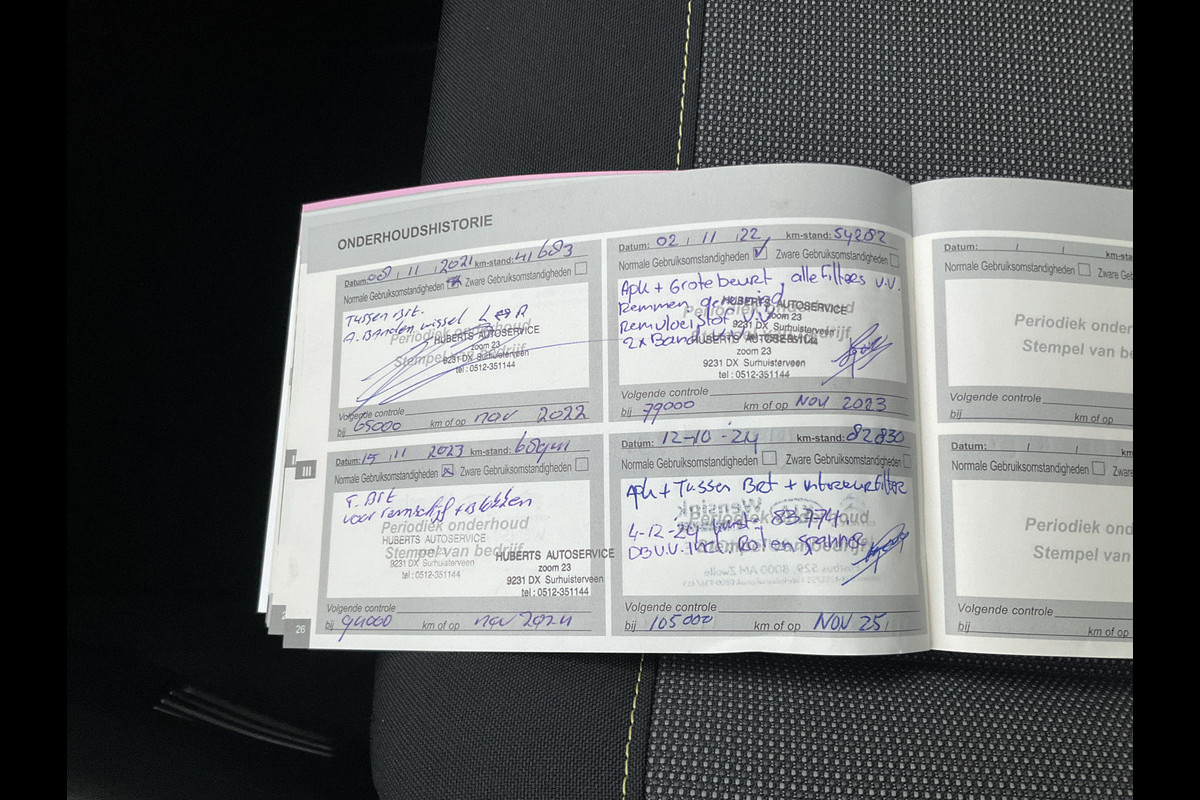 ONDERHOUDSHISTORIE
Datum: 08 / 11 / 2021 km-stand: 41683
Normale Gebruiksomstandigheden Zware Gebruiksomstandigheden
Tussen Brt.
A. Banden wissel L R
Periodiek onderhoud
Stempel van bedrijf
HUBERTS AUTOSERVICE
zoom 23
9231 DX Surhuisterveen
tel : 0512-351144
Volgende controle
bij 65000 km of op nov 2022
Datum: 02 / 11 / 22 km-stand: 54282
Normale Gebruiksomstandigheden Zware Gebruiksomstandigheden
Apk + Grote beurt, alle filters v.v.
Remmen gereinigd
Remvloeistof v.v.
2x Band
Periodiek onderhoud
HUBERTS AUTOSERVICE
zoom 23
9231 DX Surhuisterveen
HUBERTS AUTOSERVICE
zoom 23
9231 DX Surhuisterveen
tel : 0512-351144
Volgende controle
bij 79000 km of op NOV 2023
Datum: 15 / 11 / 2023 km-stand:
Normale Gebruiksomstandigheden Zware Gebruiksomstandigheden
T. Brt
voor remschijf + blokken
Periodiek onderhoud
HUBERTS AUTOSERVICE
Stempel van bedrijf
9231 DX Surhuisterveen
tel : 0512-351144
HUBERTS AUTOSERVICE
zoom 23
9231 DX Surhuisterveen
tel : 0512-351144
Volgende controle
bij 94000 km of op nov 2024
Datum: 12-10-24 km-stand: 82830
Normale Gebruiksomstandigheden Zware Gebruiksomstandigheden
Apk + Tussen Brt + interieurfilter
4-12-24 83774.
DB v.v. incl. Rol en spanner
Periodiek onderhoud
Stempel van bedrijf
Volgende controle
bij 105000 km of op NOV 25
Datum: / /
Normale Gebruiksomstandigheden
Periodiek
Stempel van
Volgende controle
bij km of op
Datum: / /
Normale Gebruiksomstandigheden
Periodiek
Stempel van
Volgende controle
bij km of op
III
26